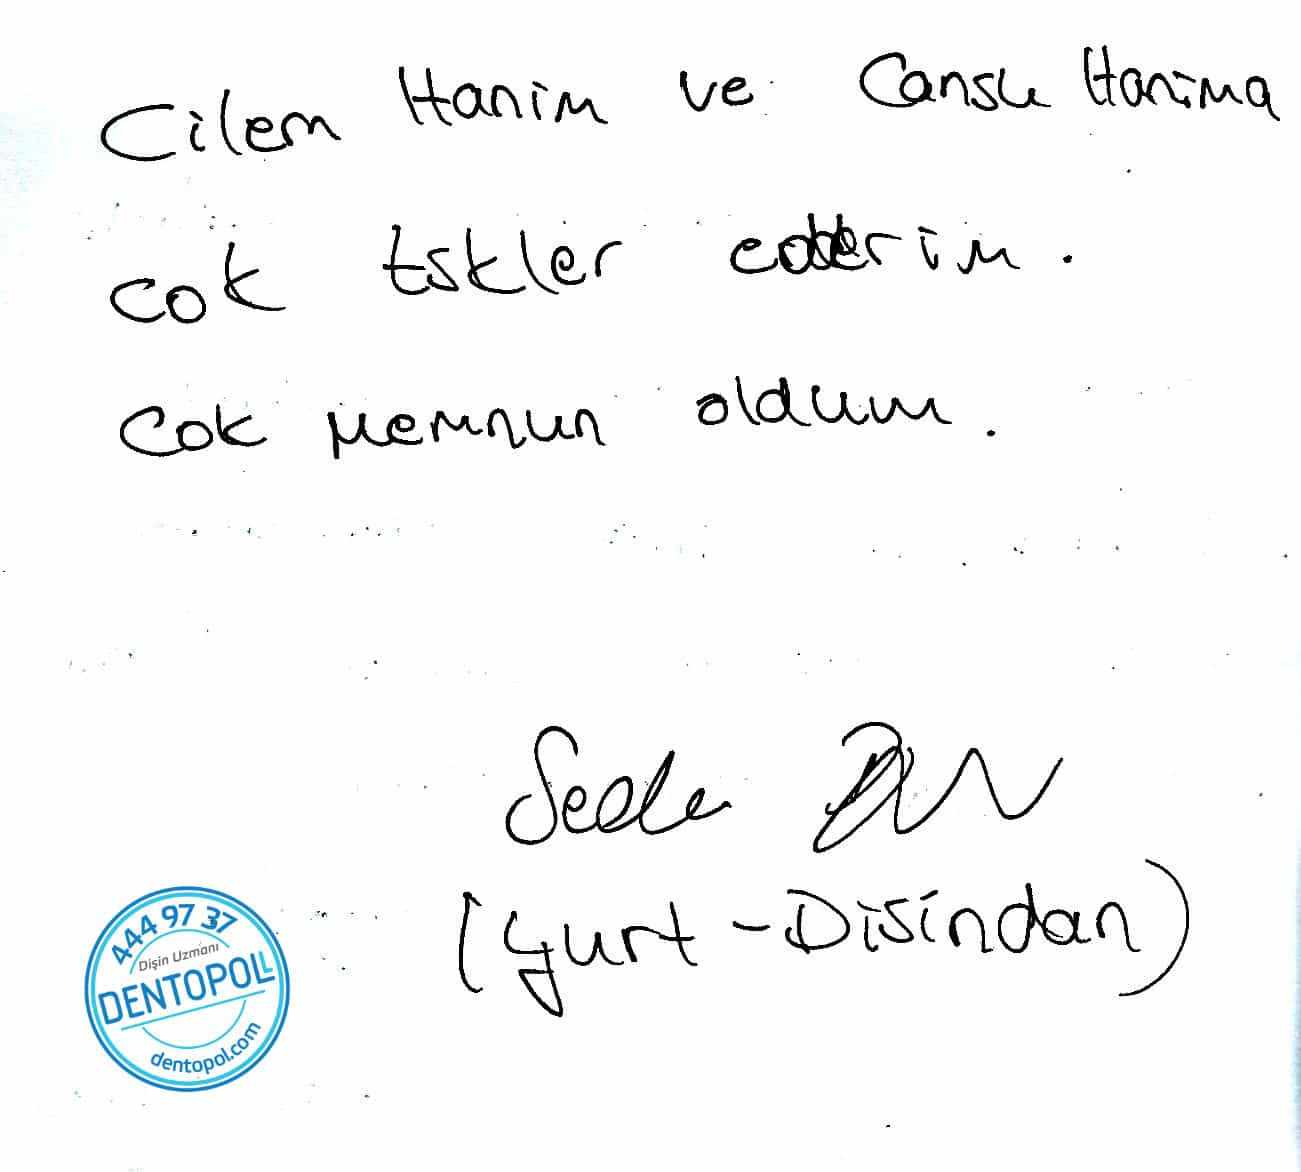 Cilem Hanim ve Cansu Hanima
cok tskler ederim.
Cok memnun oldum.
Seda
(Yurt-Disindan)
444 97 37
Dişin Uzmanı
DENTOPOL
dentopol.com